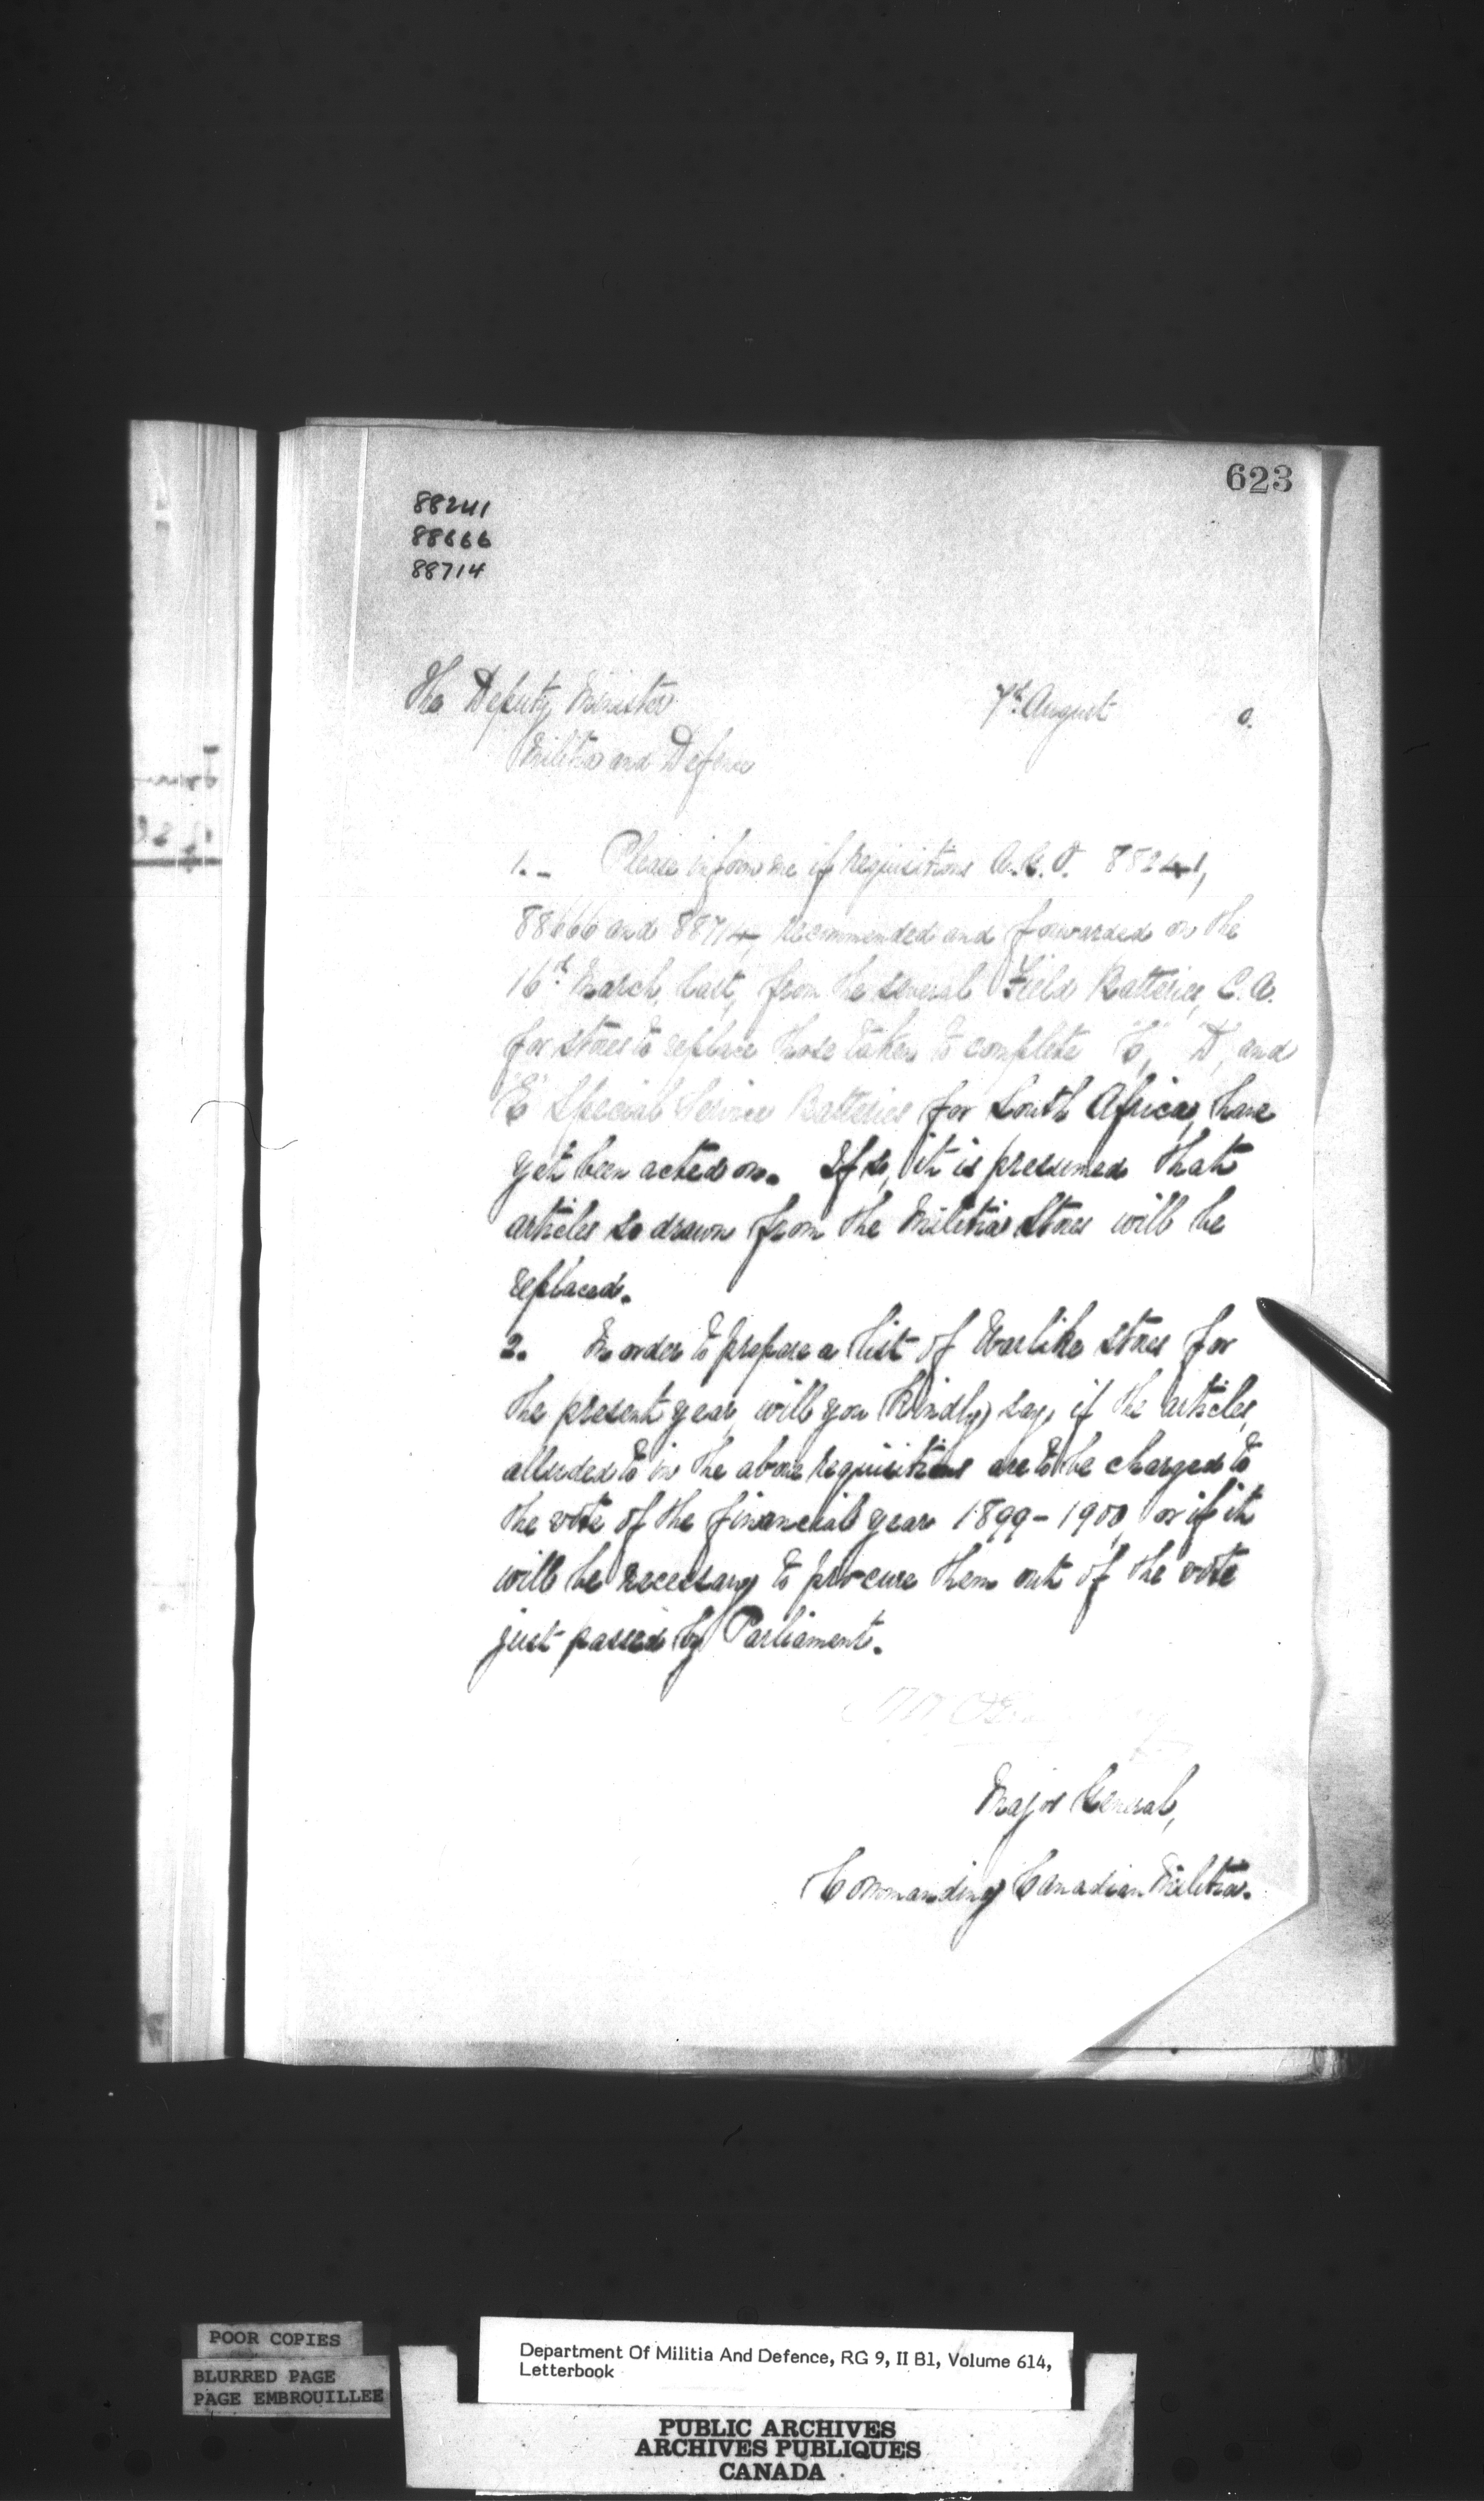 623
88241
88666
88714
The Deputy Minister
7th August 0.
Militia and Defence
1. - Please inform me if requisitions 88241,
88666 and 88714, recommended and forwarded on the
16th March last, from the several Field Batteries, C.A.
for stores to replace those taken to complete "C", "D", and
"E" Special Service Batteries for South Africa, have
yet been acted on. If so, it is presumed that
articles so drawn from the Militia Stores will be
replaced.
2. In order to prepare a list of Warlike stores for
the present year, will you kindly say, if the articles,
alluded to in the above requisitions are to be charged to
the vote of the financial year 1899-1900, or if it
will be necessary to procure them out of the vote
just passed by Parliament.
Major General,
Commanding Canadian Militia.
POOR COPIES
BLURRED PAGE
PAGE EMBROUILLEE
Department Of Militia And Defence, RG 9, II B1, Volume 614,
Letterbook
PUBLIC ARCHIVES
ARCHIVES PUBLIQUES
CANADA